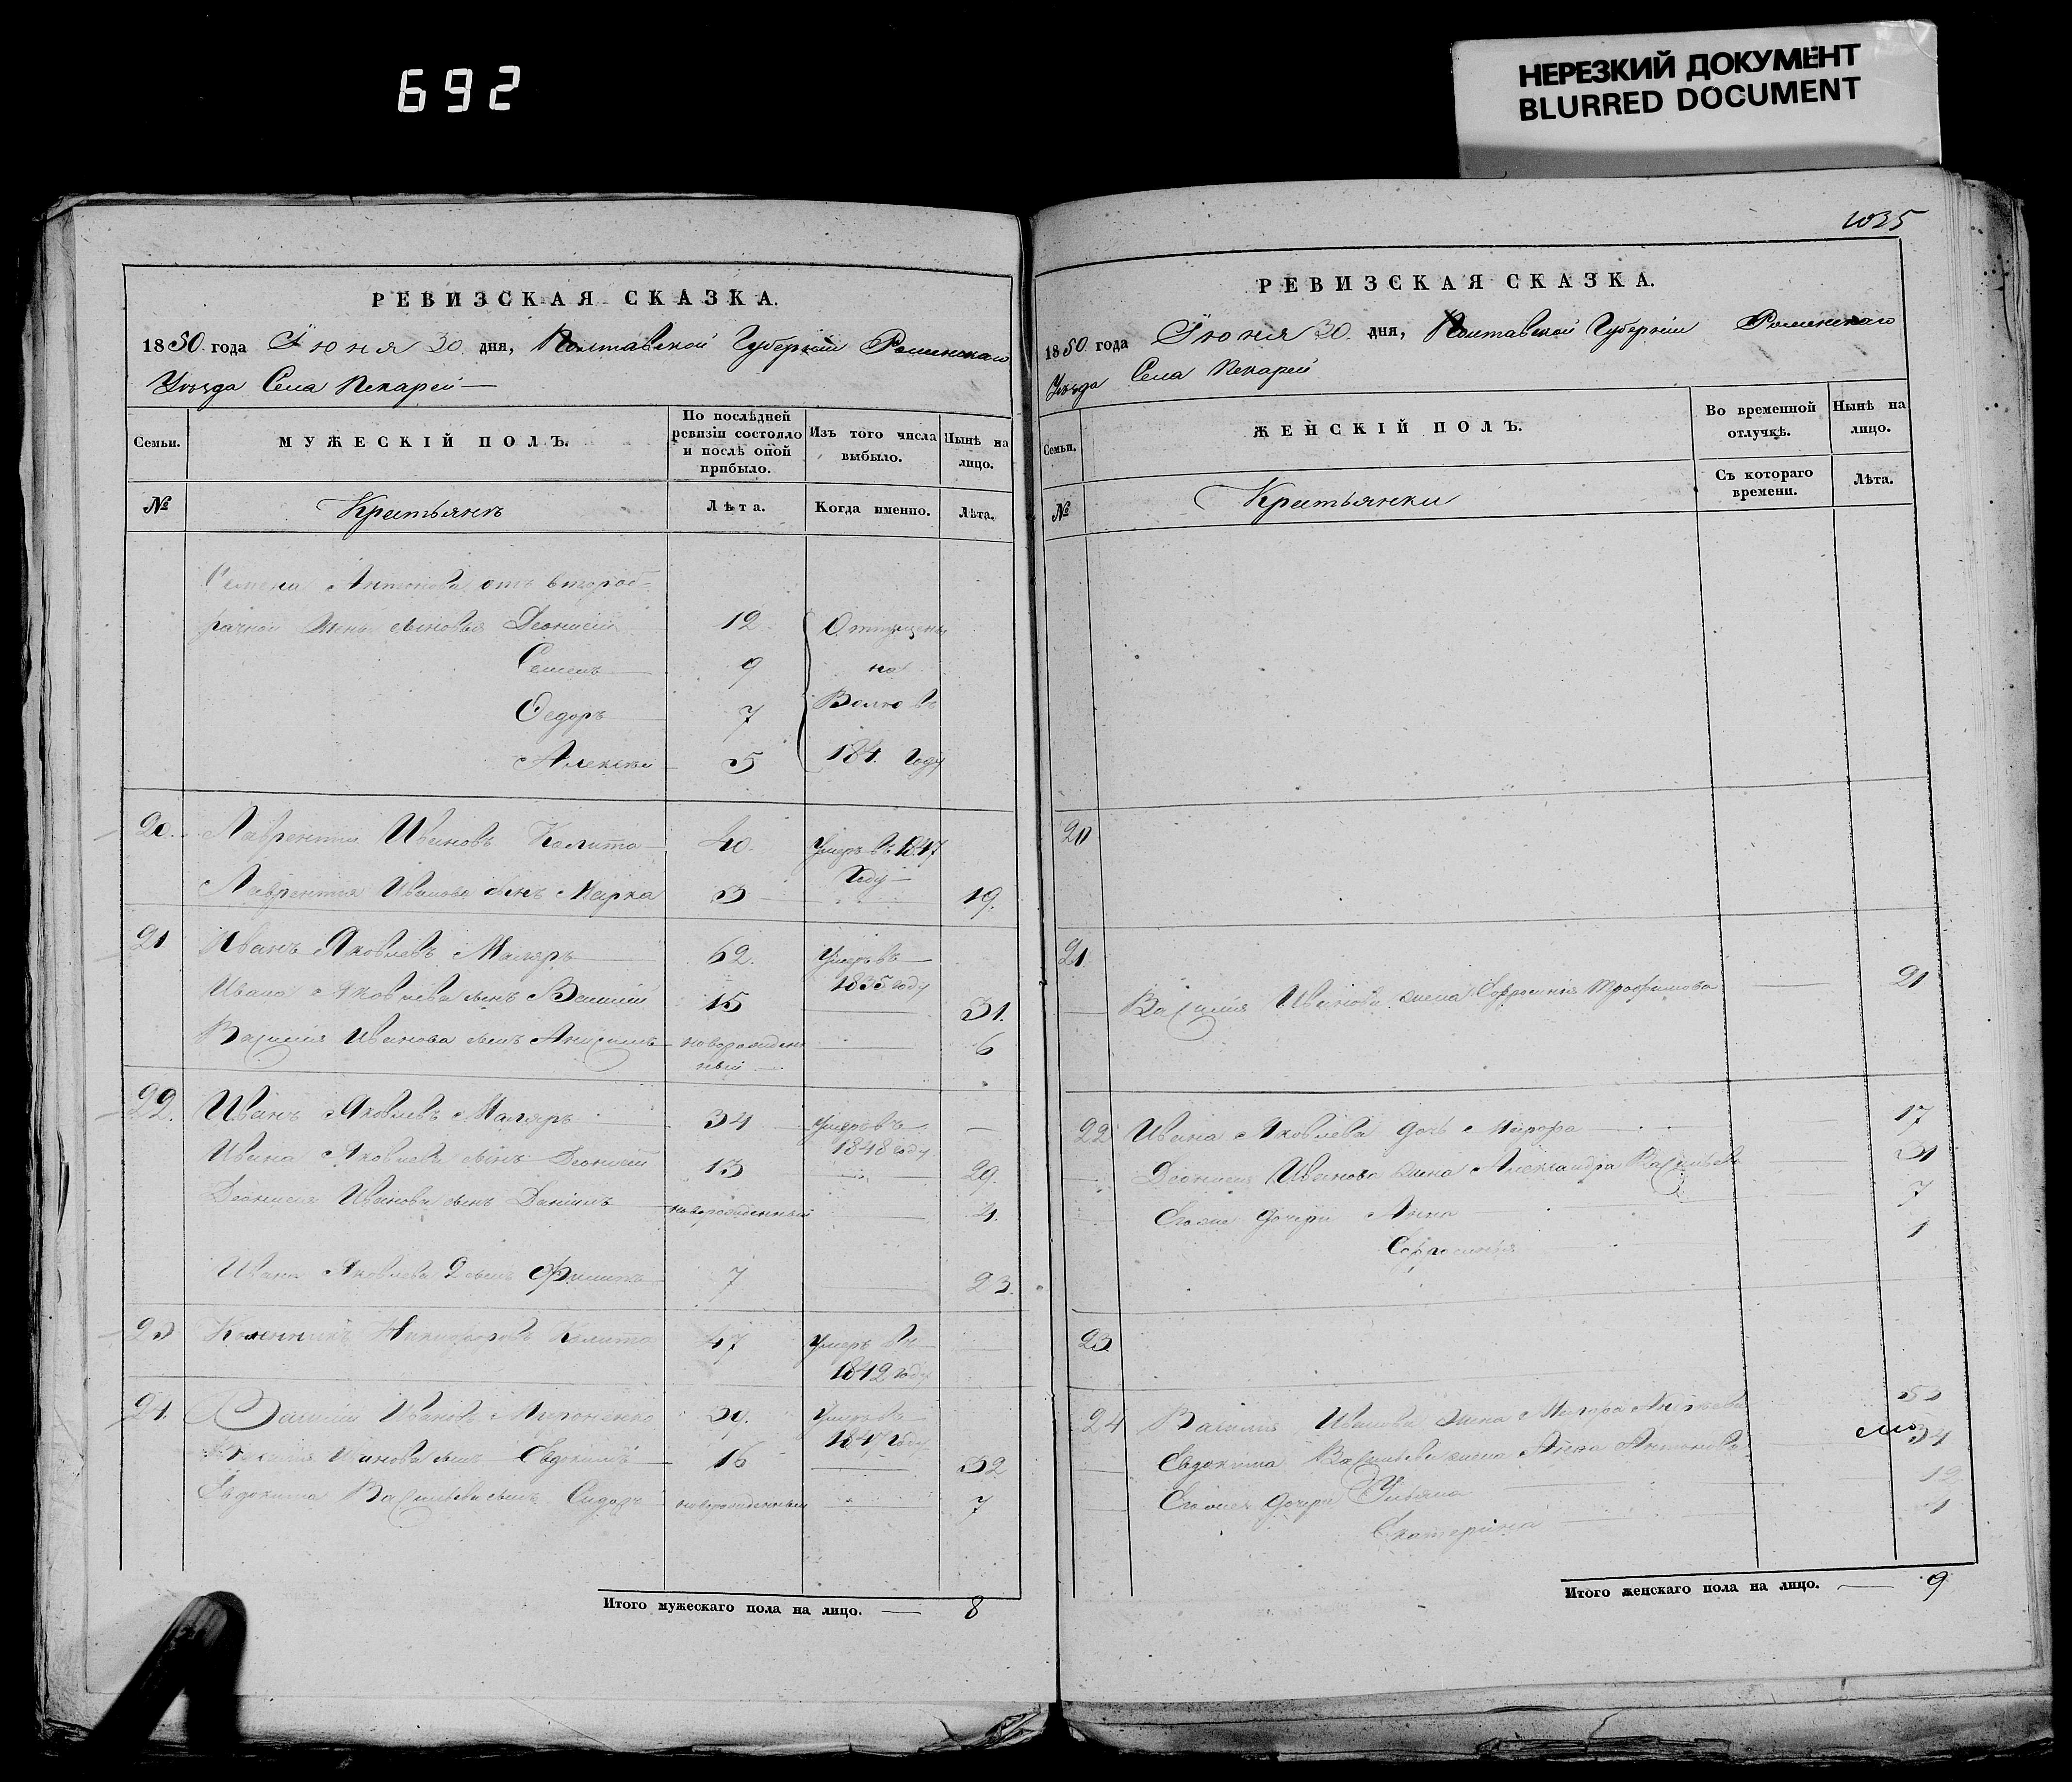 692
НЕРЕЗКИЙ ДОКУМЕНТ
BLURRED DOCUMENT
РЕВИЗСКАЯ СКАЗКА.
1850 года Іюня 30 дня, Полтавской Губерніи Роменскаго
Уѣзда Села Пекарей
Семьи. МУЖЕСКІЙ ПОЛЪ. По послѣдней ревизіи состояло и послѣ оной прибыло. Изъ того числа выбыло. Нынѣ на лицо.
№ Крестьянъ Лѣта. Когда именно. Лѣта.
Семена Антонова отъ второб-
рачной жены сыновья Деонисій 12 Отпущены
Семенъ 9 на
Федоръ 7 Волю въ
Алексѣй 5 184. Году
20. Лаврентій Ивановъ Калита 40. Умеръ въ 1847
Году
Лаврентія Иванова сынъ Марко 3 19.
21 Иванъ Яковлевъ Маляръ 62. Умеръ въ
1835 году
Ивана Яковлева сынъ Василій 15 31.
Василія Иванова сынъ Анисимъ новорожден 6
ный
22. Иванъ Яковлевъ Маляръ 34 Умеръ въ
1848 году
Ивана Яковлева сынъ Деонисій 13 29.
Деонисія Иванова сынъ Даніилъ новорожденный 4.
Ивана Яковлева 2 сынъ Филипъ 7 23.
23 Никифоровъ Калита 47 Умеръ въ
1842 году
24. Василій Ивановъ Мироненко 39. Умеръ въ
1847 году
Василія Иванова сынъ Евдокимъ 16 32
Евдокима Васильева сынъ Сидоръ новорожденный 7
Итого мужескаго пола на лицо. 8
1035
РЕВИЗСКАЯ СКАЗКА.
1850 года Іюня 30 дня, Полтавской Губерніи Роменскаго
Уѣзда Села Пекарей
Семьи. ЖЕНСКІЙ ПОЛЪ. Во временной отлучкѣ. Нынѣ на лицо.
№ Крестьянки Съ котораго времени. Лѣта.
20
21
Василія Иванова жена Ефросинія Трофимова 21
22 Ивана Яковлева дочь Марфа 17
Деонисія Иванова жена Александра Васильева 31
Егоже дочери Анна 7
Ефросинія 1
23.
24 Василія Иванова жена 53
Евдокима Васильева жена Анна Антонова 34
Егоже дочери Ульяна 12
Екатерина 1
Итого женскаго пола на лицо. 9